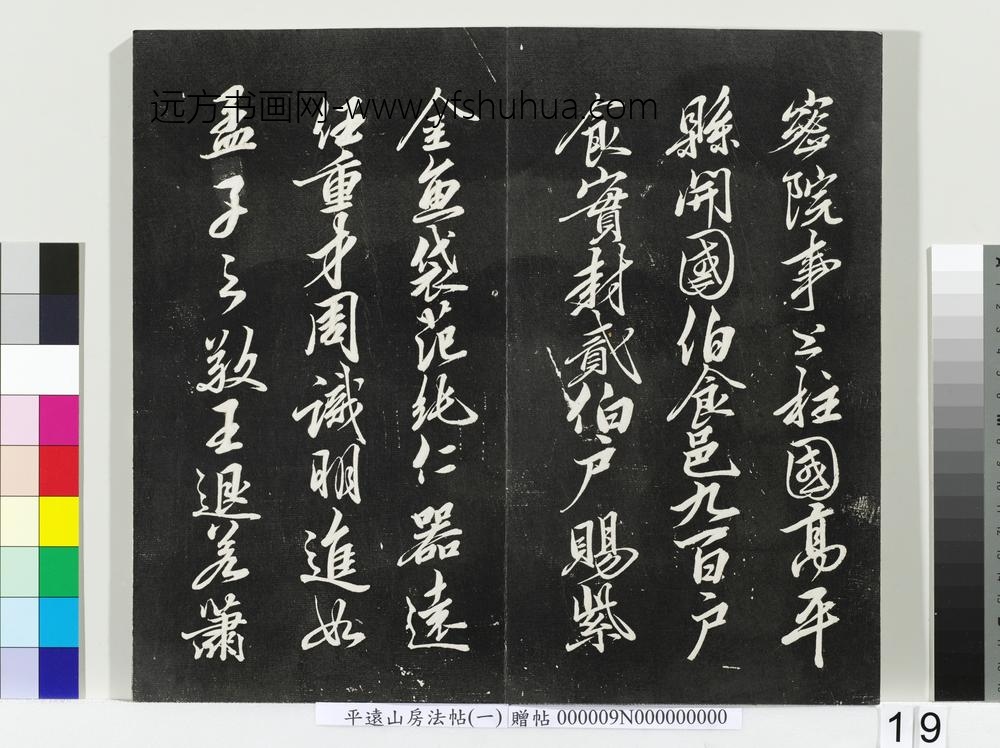 密院事上柱國高平
縣開國伯食邑九百户
食實封貳伯户賜紫
金魚袋范純仁器遠
任重才周識明進如
孟子之敬王退若蕭
远方书画网-www.yfshuhua.com
平遠山房法帖(一) 贈帖 000009N000000000
19